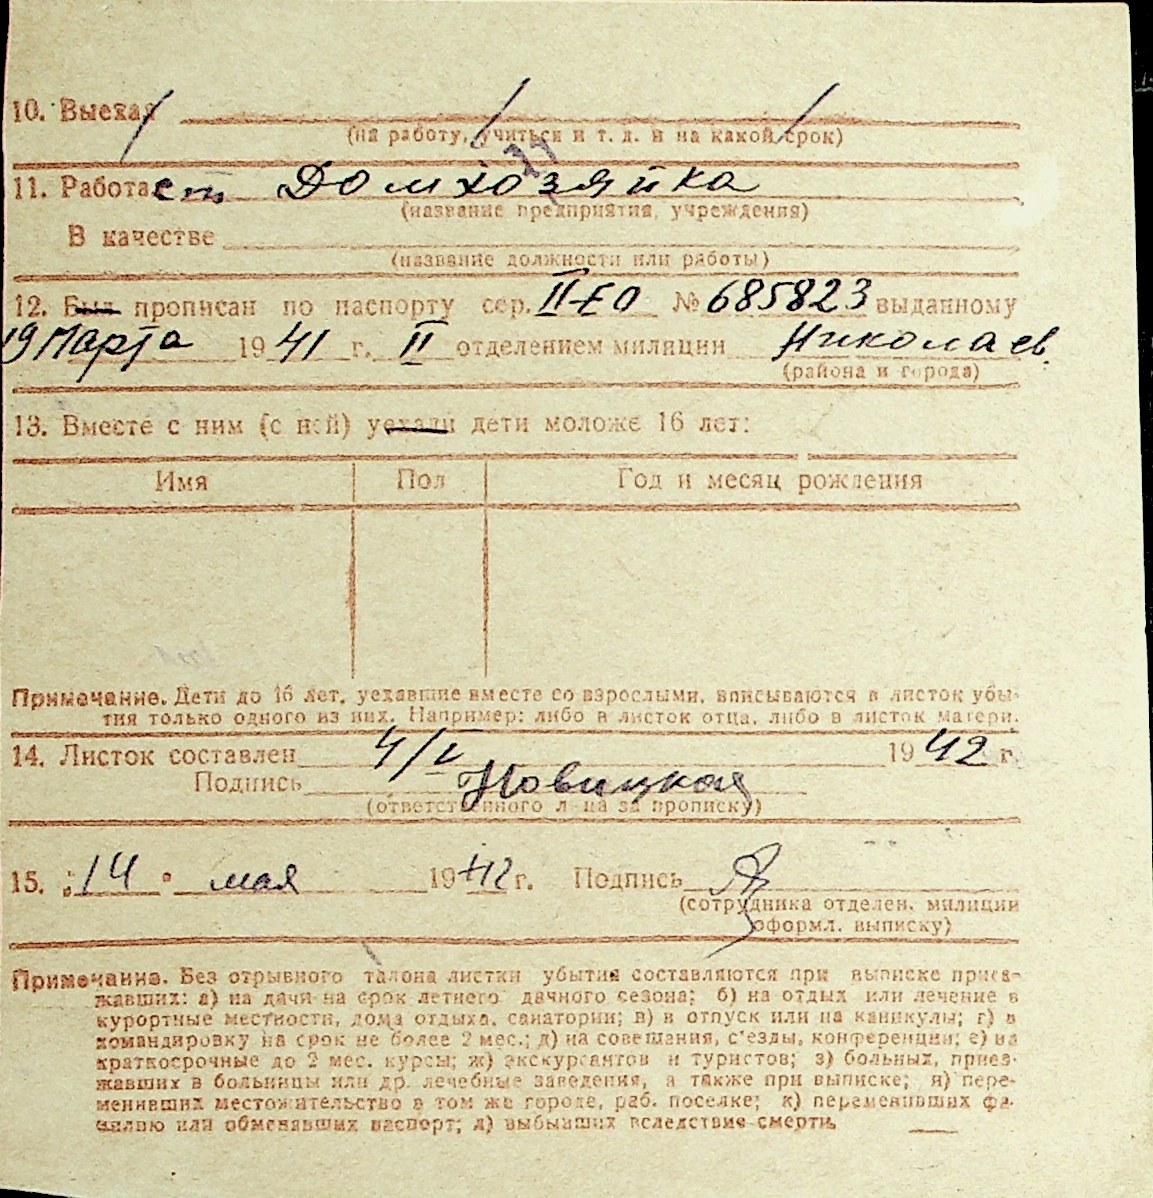 10. Выехал
(на работу, учиться и т. д. и на какой срок)
11. Работает Домхозяйка
(название предприятия, учреждения)
В качестве
(название должности или работы)
12. Был прописан по паспорту сер. II-ЕО № 685823 выданному
19 Марта 1941 г. II отделением милиции Николаев.
(района и города)
13. Вместе с ним (с ней) уехали дети моложе 16 лет:
Имя Пол Год и месяц рождения
Примечание. Дети до 16 лет, уехавшие вместе со взрослыми, вписываются в листок убы-
тия только одного из них. Например: либо в листок отца, либо в листок матери.
14. Листок составлен 4/V 1942 г.
Подпись Новицкая
(ответственного лица за прописку)
15. "14" мая 1942 г. Подпись
(сотрудника отделен. милиции
оформл. выписку)
Примечание. Без отрывного талона листки убытия составляются при выписке приез-
жавших: а) на дачи на срок летнего дачного сезона; б) на отдых или лечение в
курортные местности, дома отдыха, санатории; в) в отпуск или на каникулы; г) в
командировку на срок не более 2 мес.; д) на совещания, с'езды, конференции; е) на
краткосрочные до 2 мес. курсы; ж) экскурсантов и туристов; з) больных, приез-
жавших в больницы или др. лечебные заведения, а также при выписке; и) пере-
менивших местожительство в том же городе, раб. поселке; к) переменивших фа-
милию или обменявших паспорт; л) выбывших вследствие смерти.